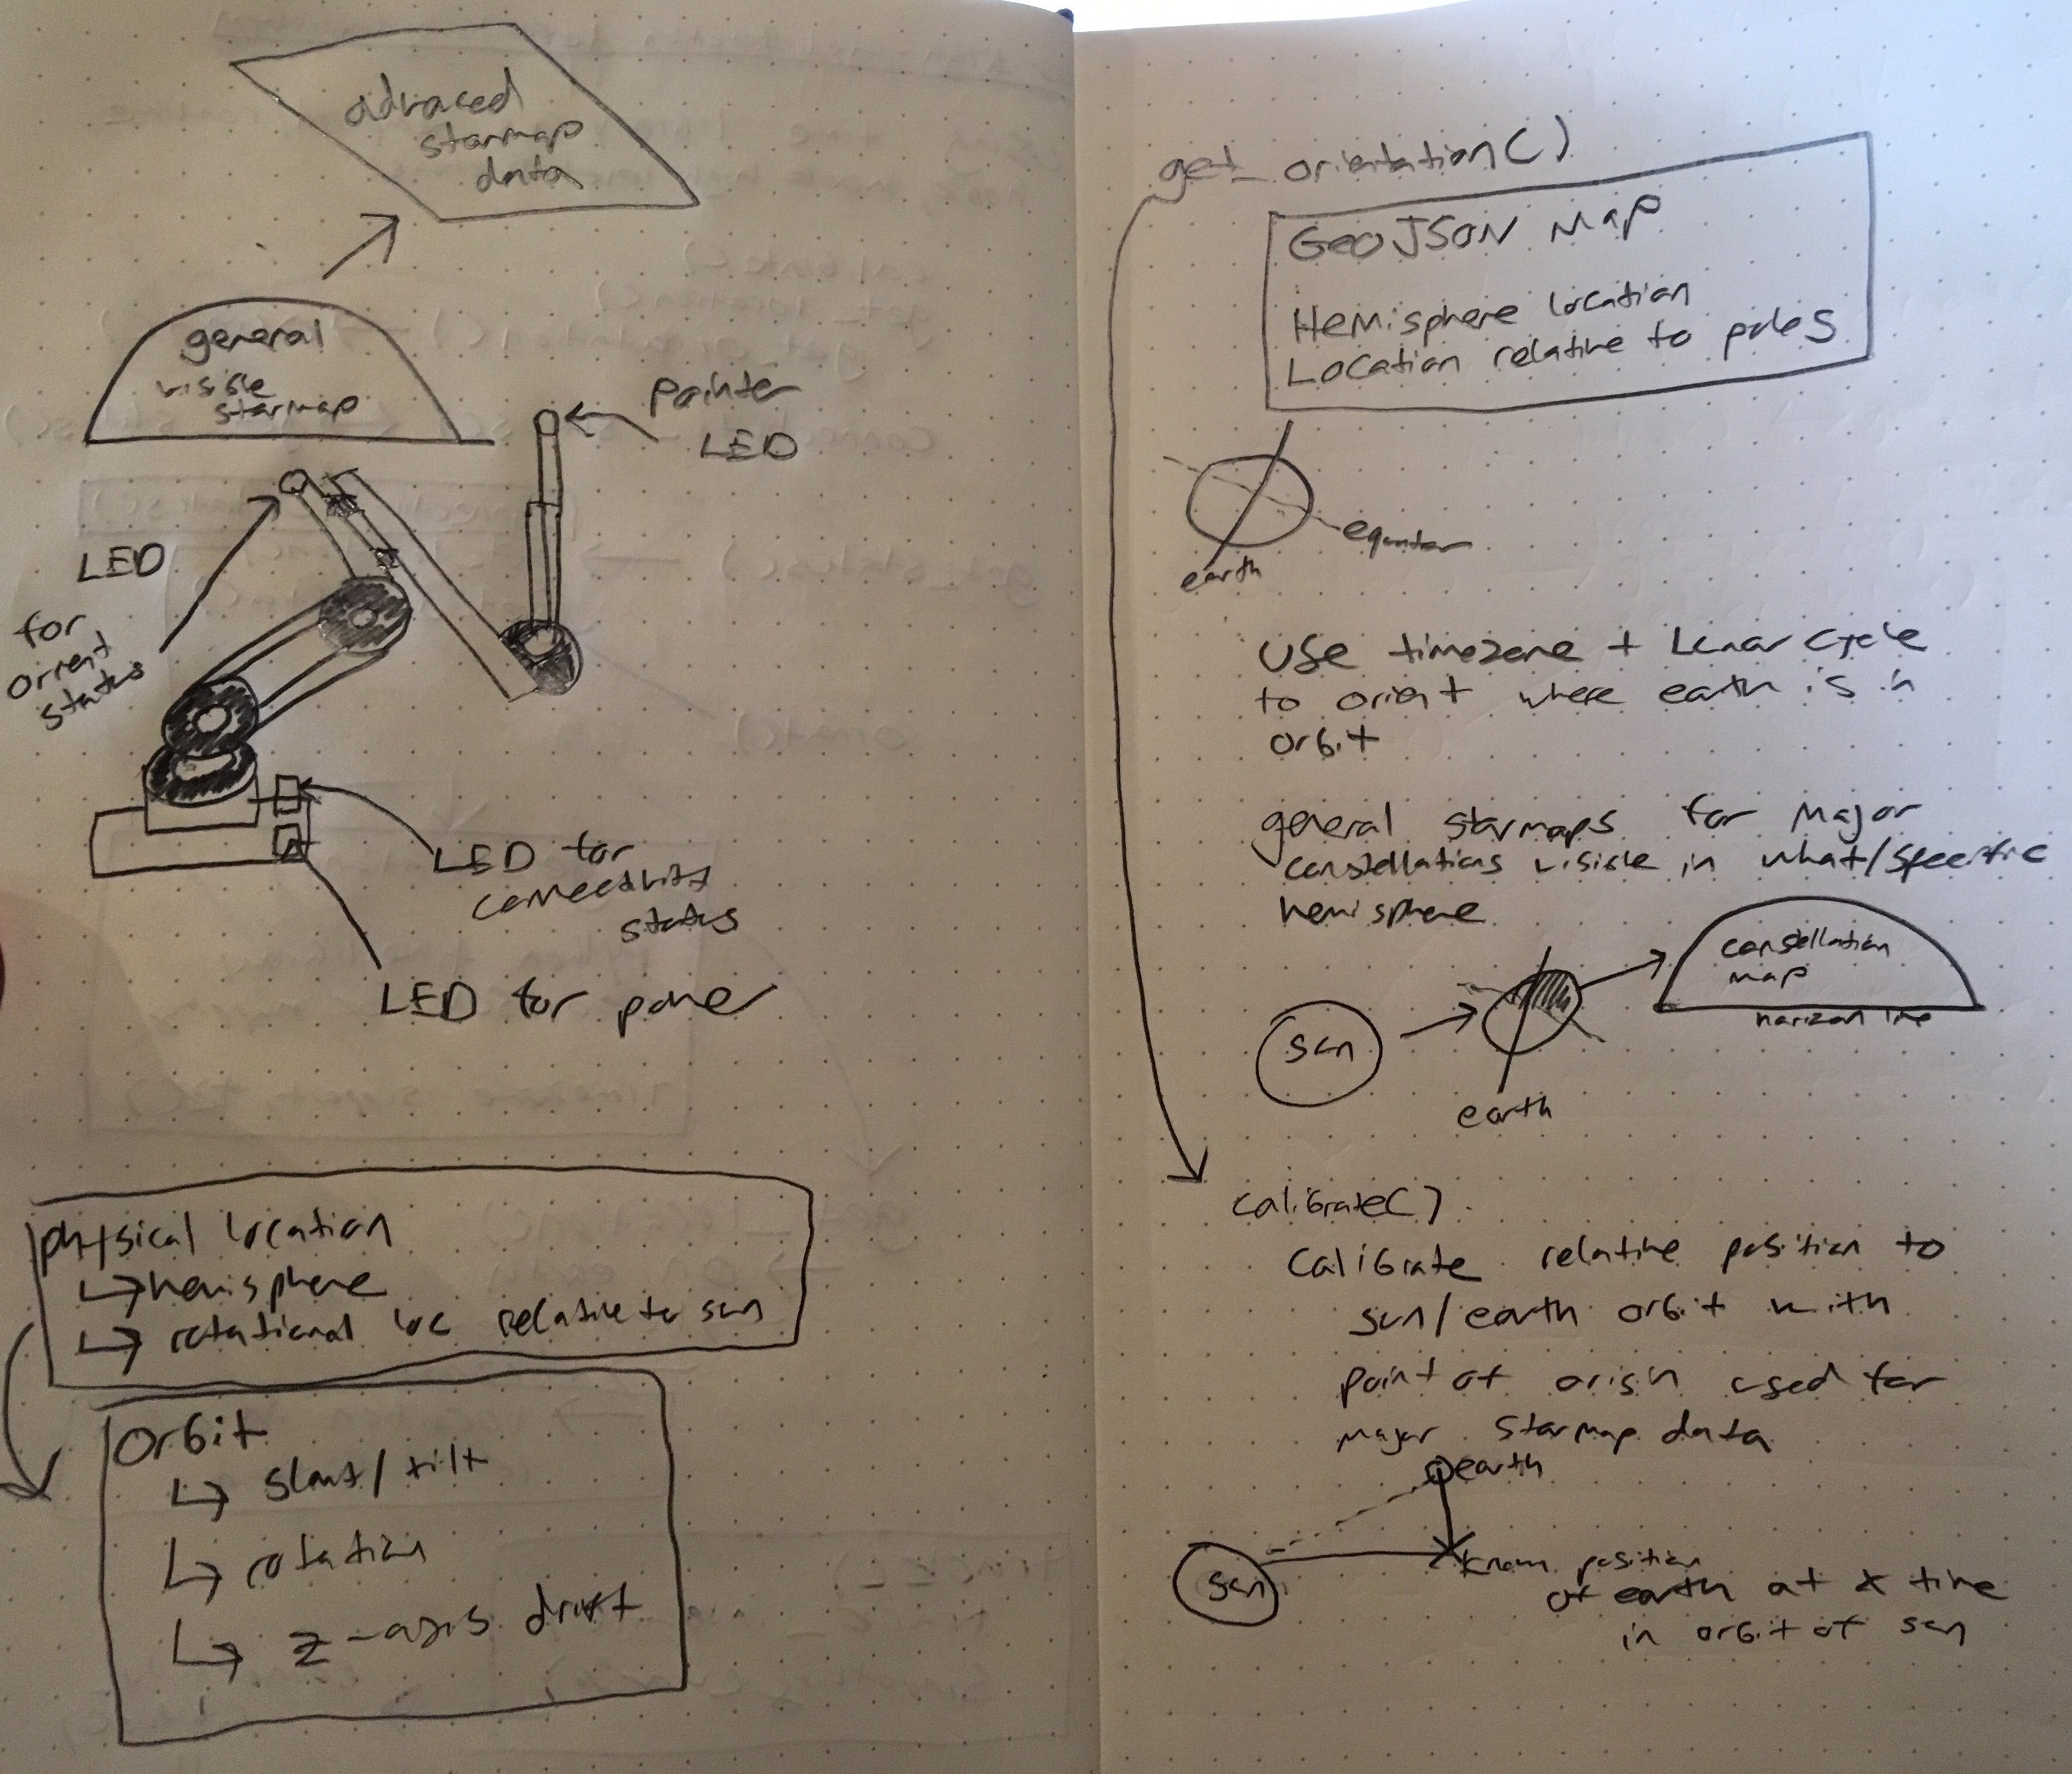 advaced
starmap
data
general
visible
starmap
pointer
LED
LED
for
orient
status
LED for
connectivity
status
LED for power
physical location
↳ hemisphere
↳ rotational loc relative to sun
Orbit
↳ slant/tilt
↳ rotation
↳ z-axis drift
get_orientation()
GeoJSON Map
Hemisphere location
Location relative to poles
equator
earth
Use timezone + Lunar cycle
to orient where earth is in
orbit
general starmaps for major
constellations visible in what/specific
hemisphere
constellation
map
horizon line
sun
earth
calibrate()
calibrate relative position to
sun/earth orbit with
point of origin used for
major starmap data
earth
sun
known position
of earth at x time
in orbit of sun